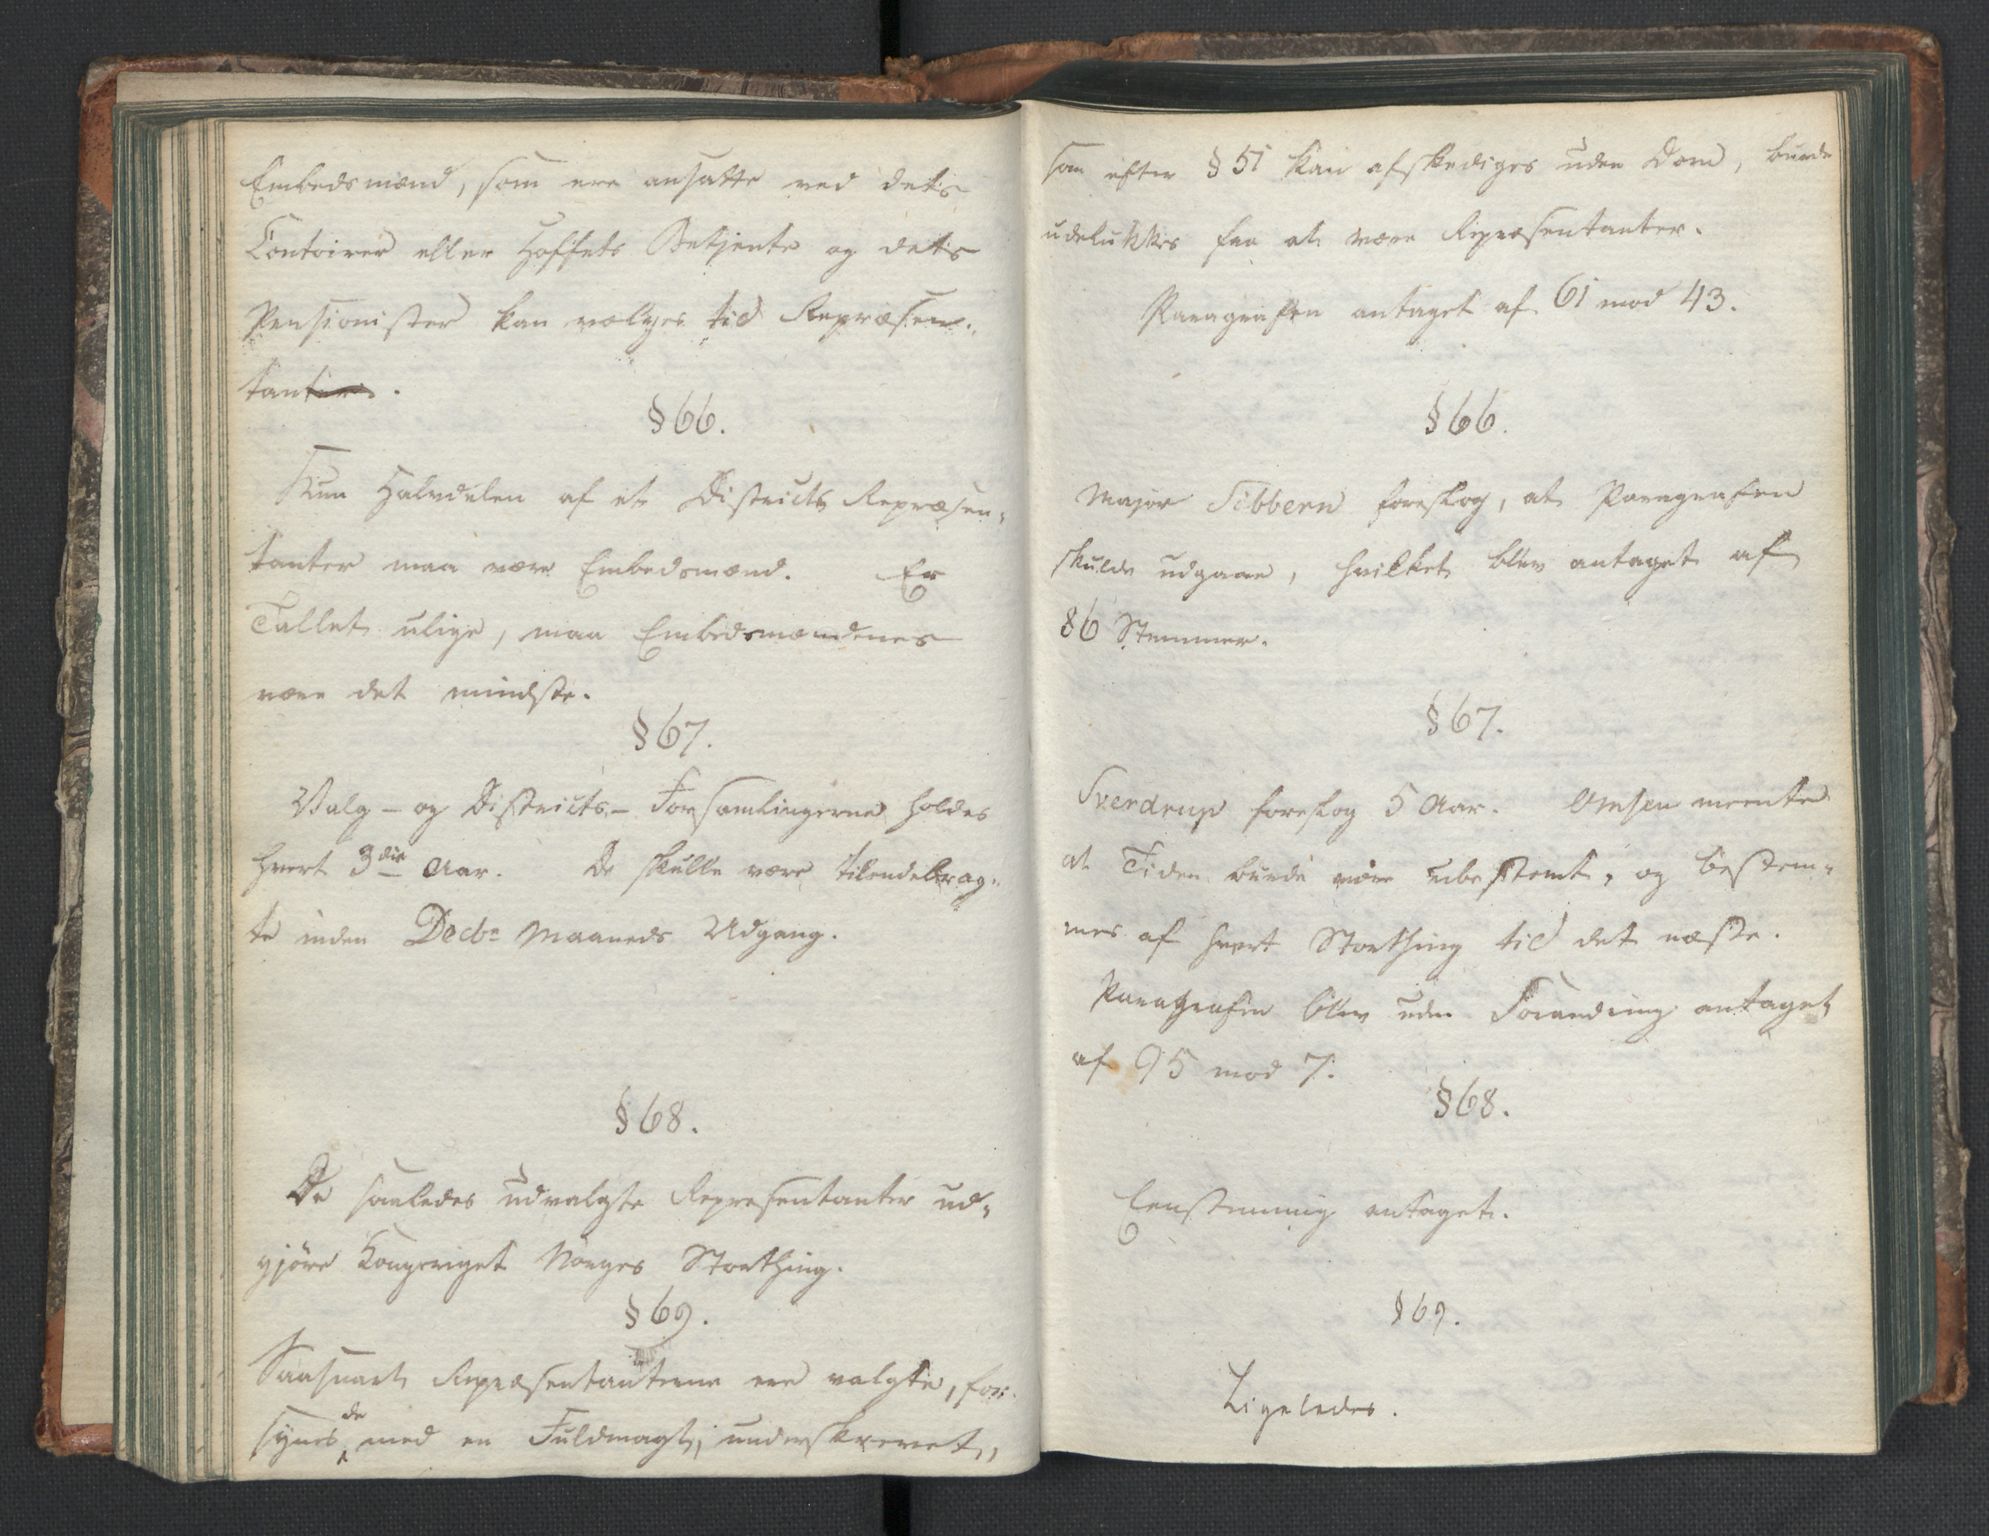 Embedsmænd, som ere ansatte ved dets
Contoirer eller Hoffets Betjente og dets
Pensionister kan vælges til Repræsen-
tanter.
§ 66.
Kun Halvdelen af et Districts Repræsen-
tanter maa være Embedsmænd. Er
Tallet ulige, maa Embedsmændenes
være det mindste.
§ 67.
Valg- og Districts-Forsamlingerne holdes
hvert 3die Aar. De skulle være tilendebrag-
te inden Decbr Maaneds Udgang.
§ 68.
De saaledes udvalgte Repræsentanter ud-
gjöre Kongeriget Norges Storthing.
§ 69.
Saasnart Repræsentanterne ere valgte, for-
synes de med en Fuldmagt, underskrevet,
som efter § 51 kan afskediges uden Dom, burde
udelukkes fra at være Repræsentanter.
Paragrafen antaget af 61 mod 43.
§ 66.
Major Sibbern foreslog, at Paragrafen
skulde udgaae, hvilket blev antaget af
86 Stemmer.
§ 67.
Sverdrup foreslog 5 Aar. Omsen meente
at Tiden burde være ubestemt, og bestem-
mes af hvert Storthing til det næste.
Paragrafen blev uden Forandring antaget
af 95 mod 7.
§ 68.
Eenstemmig antaget.
§ 69.
Ligeledes.